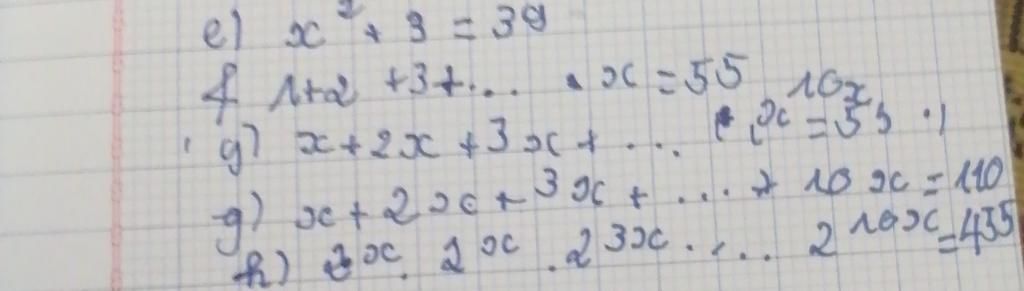 e) x² + 3 = 39
f 1+2 +3+... . x = 55
g) x+2x+3x+ ... 10x = 55
g) x+2x+3x+ ... + 10x = 110
h) 2ˣ . 2ˣ . 2³ˣ . ... 2¹⁰ˣ = 435